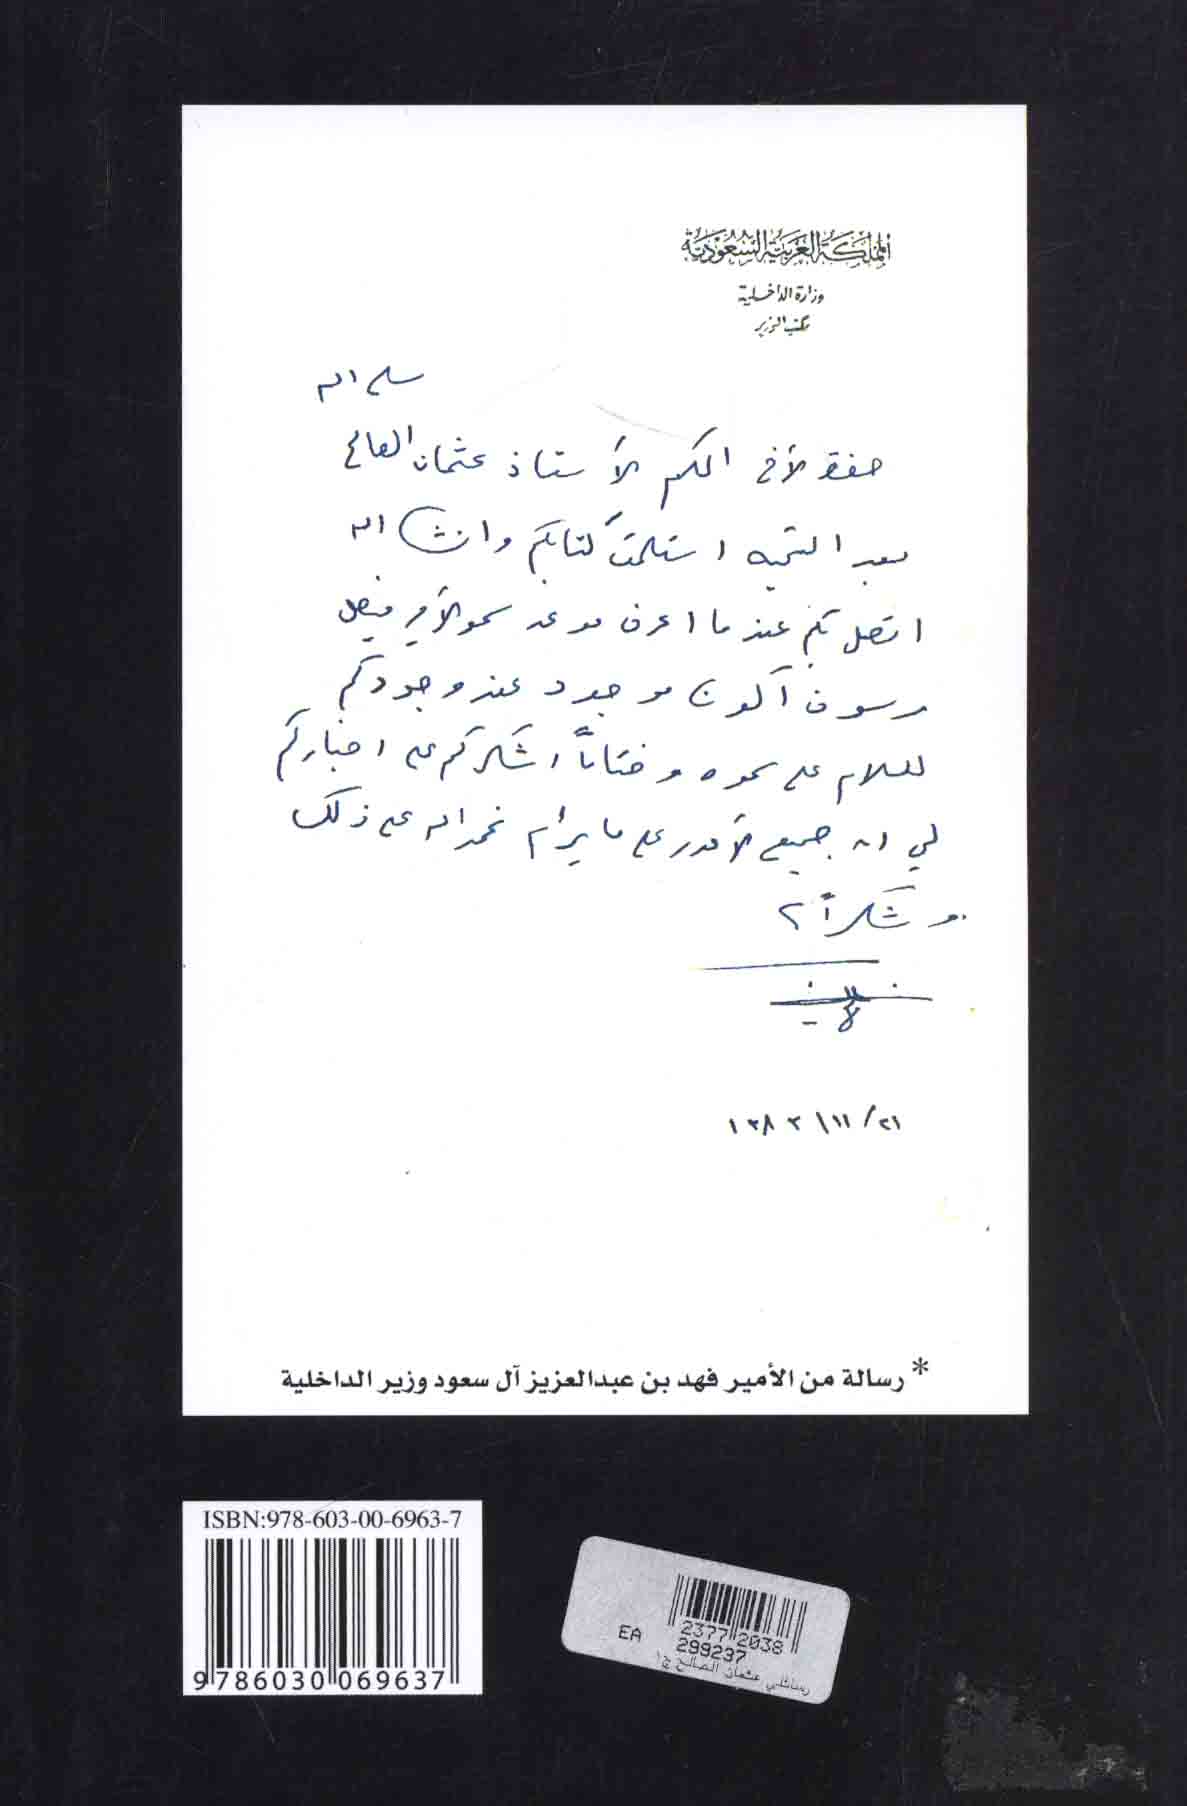 المملكة العربية السعودية
وزارة الداخلية
مكتب الوزير
سلمه الله
حضرة الأخ المكرم الأستاذ عثمان الصالح
بعد التحية استلمت كتابكم وانشاء الله
اتصل بكم عندما اعرف موعد سمو الأمير فيصل
وسوف أكون موجود عند وجودكم
للسلام على سموه وختاماً اشكركم على اخباركم
لي ان جميع الأمور على ما يرام نحمد الله على ذلك
وشكراً
٢١/١١/١٣٨٣
* رسالة من الأمير فهد بن عبدالعزيز آل سعود وزير الداخلية
ISBN:978-603-00-6963-7
9 786030 069637
2377 2038
EA 299237
رسائلي عثمان الصالح ج١